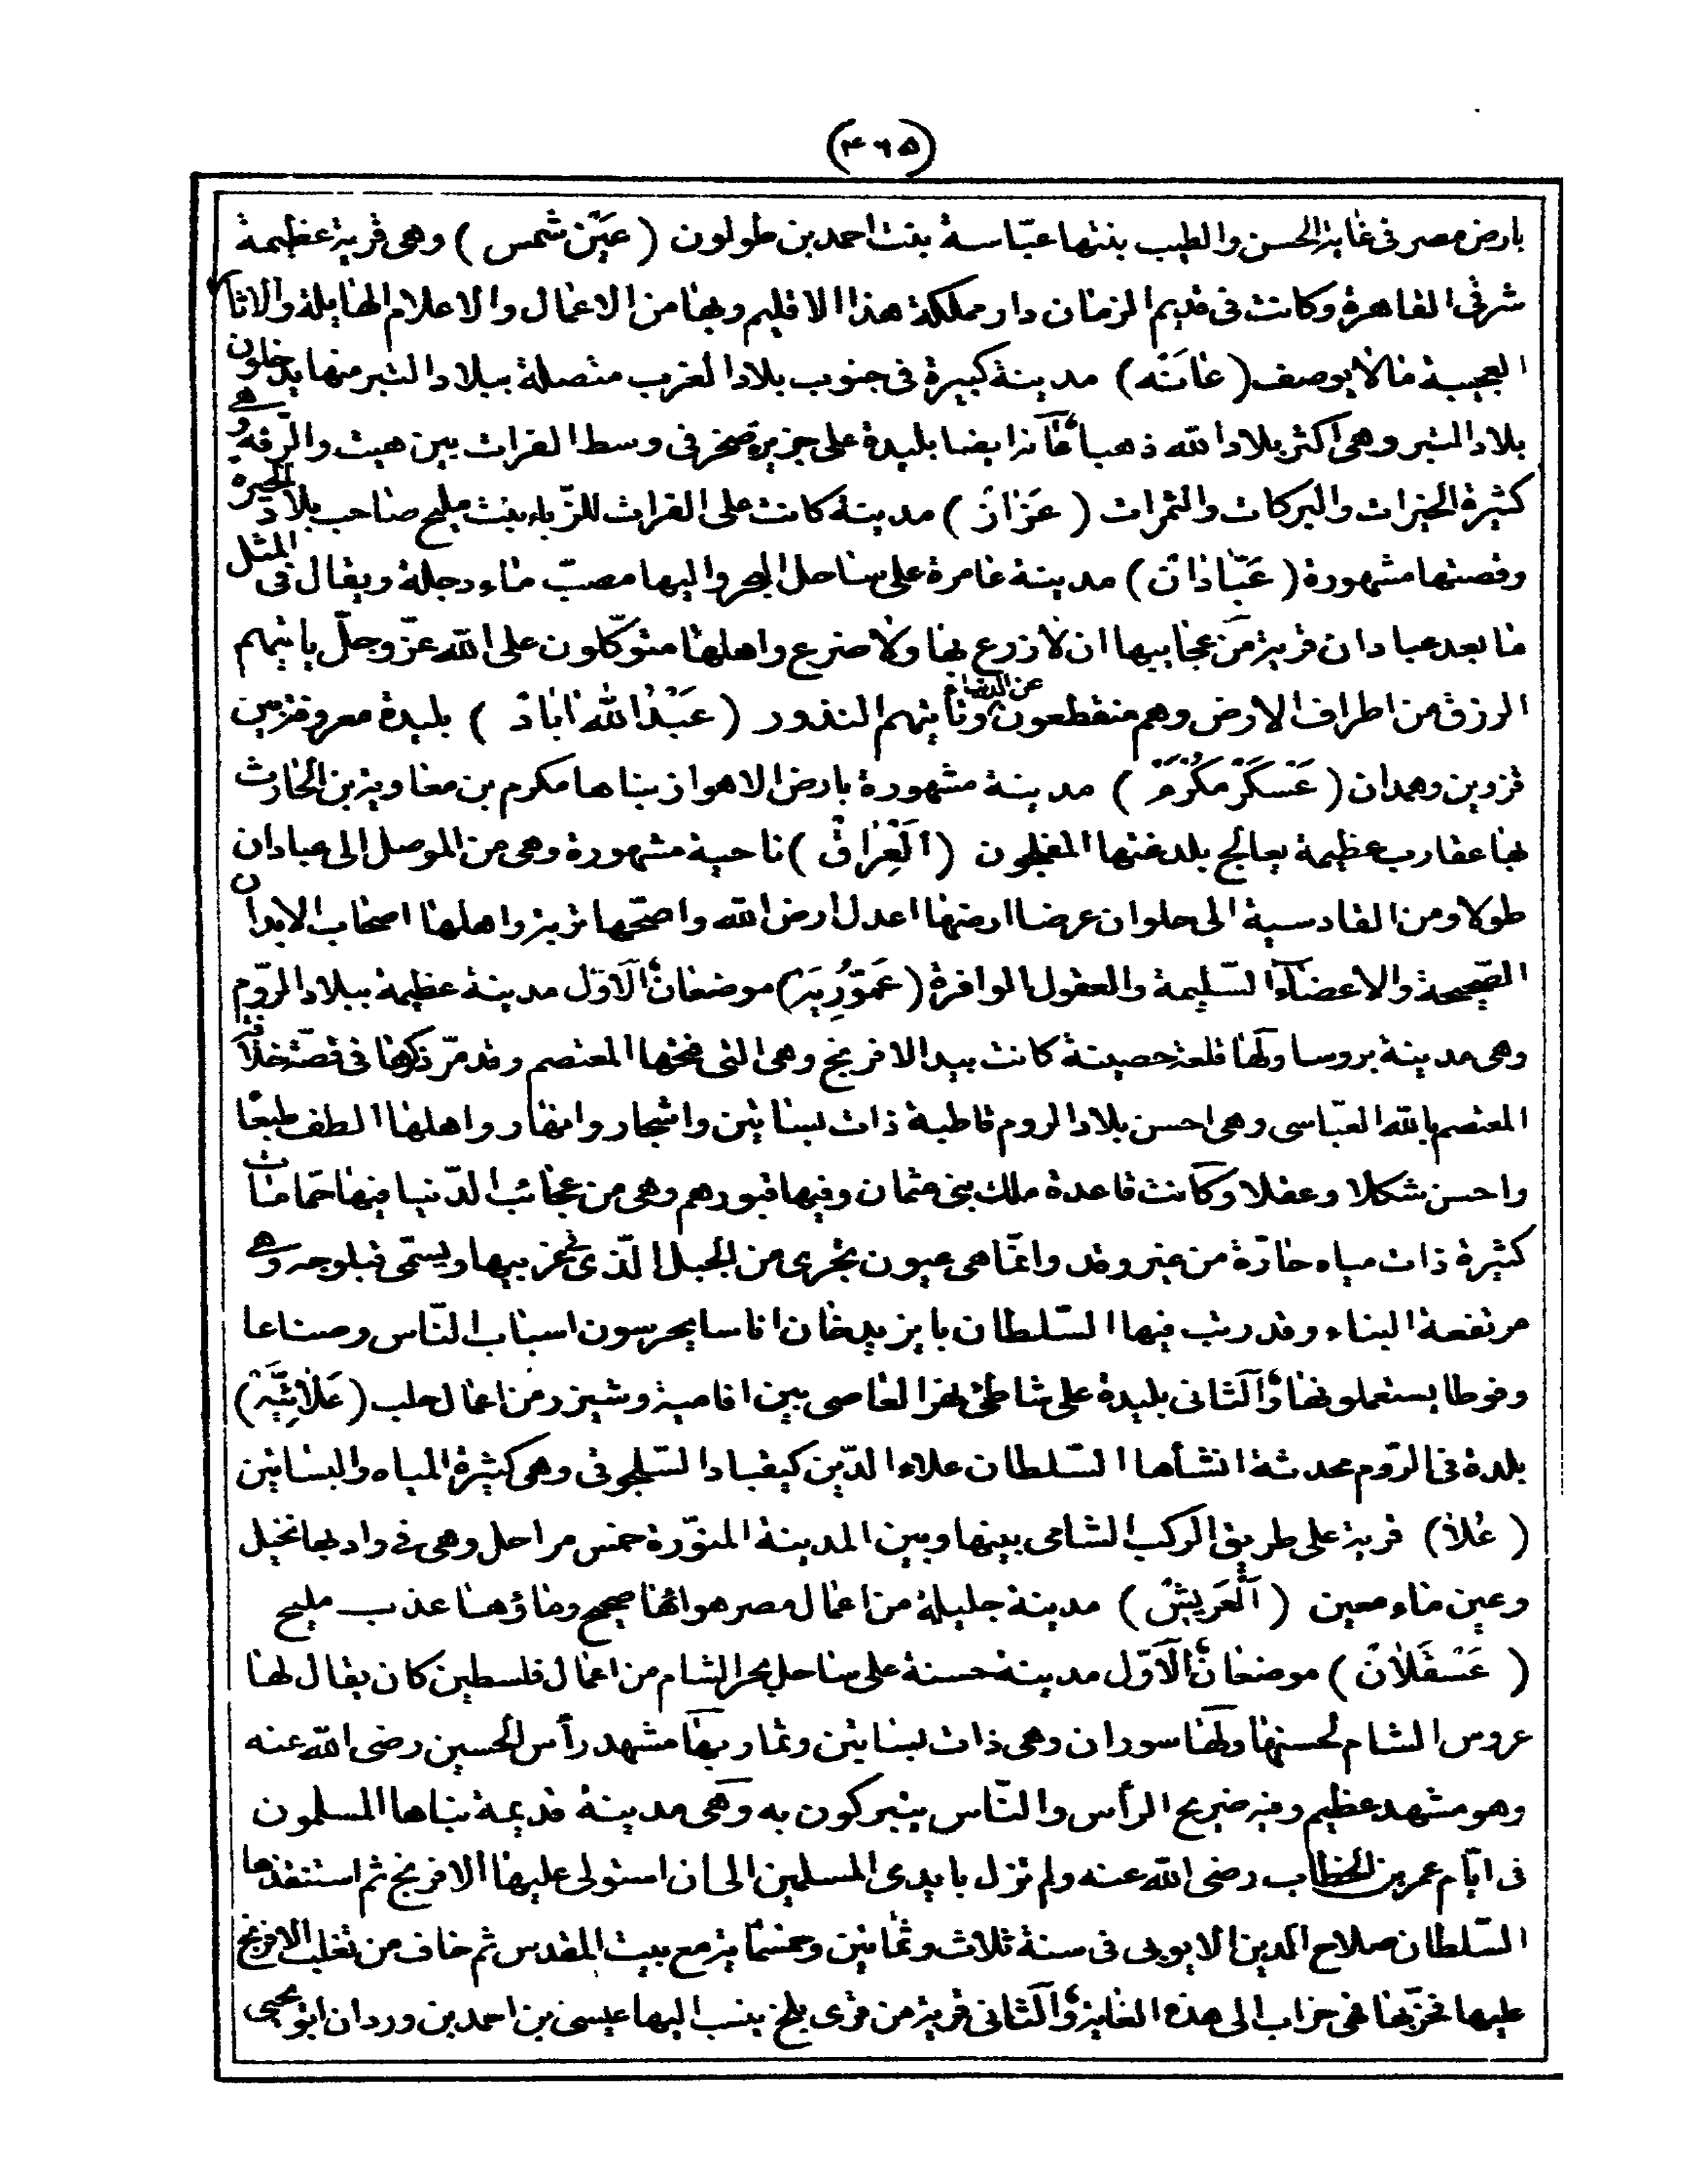 (٤٦٥)
بارض مصر فى غاية الحسن والطيب بنتها عبّاسة بنت احمد بن طولون (عَيْن شمس) وهى قرية عظيمة
شرقى القاهرة وكانت فى قديم الزمان دار مملكة هذا الاقليم وبها من الاعمال والاعلام الهايلة والاثار
العجيبة مالا يوصف (غَانَه) مدينة كبيرة فى جنوب بلاد الغرب متصلة ببلاد التبر منها يدخلون
بلاد التبر وهى اكثر بلاد الله ذهبا عانه ايضا بليدة على جزيرة صخر فى وسط الفرات بين هيت والرقة وهى
كثيرة الخيرات والبركات والثمرات (عَزَانْ) مدينة كانت على الفرات للزّباء بنت مليح صاحب بلاد الحيرة
وقصتها مشهورة (عَبّادَانْ) مدينة عامرة على ساحل البحر واليها مصبّ ماء دجلة ويقال فى المثل
ما بعد عبادان قرية من عجايبها ان لا زرع بها ولا ضرع واهلها متوكّلون على الله عزّ وجلّ ياتيهم
الرزق من اطراف الارض وهم منقطعون عن الدنيا وتاتيهم النذور (عَبْدُ الله اٰبادْ) بليدة معروفة بين
قزوين وهمدان (عَسْكَرْ مُكْرَمْ) مدينة مشهورة بارض الاهواز بناها مكرم بن معاوية بن الحارث
بها عقارب عظيمة يعالج بلدغتها المفلجون (اَلْعِرَاقْ) ناحية مشهورة وهى من الموصل الى عبادان
طولا ومن القادسية الى حلوان عرضا ارضها اعدل ارض الله واصحّها تربة واهلها اصحاب الابدان
الصّحيحة والاعضاء السّليمة والعقول الوافرة (عَمّوُرِيَة) موضعان الاوّل مدينة عظيمة ببلاد الرّوم
وهى مدينة بروسا ولها قلعة حصينة كانت بيد الافرنج وهى التى فتحها المعتصم وقد مرّ ذكرها فى قصّة خلافة
المعتصم بالله العبّاسى وهى احسن بلاد الروم قاطبة ذات بساتين واشجار وانهار واهلها الطف طبعا
واحسن شكلا وعقلا وكانت قاعدة ملك بنى عثمان وفيها قبورهم وهى من عجائب الدّنيا فيها حمّامات
كثيرة ذات مياه حارّة من غير وقد وانّما هى عيون تجرى من الجبل الّذى فى غربيها ويسمّى قبلوجه وهى
مرتفعة البناء وقد رتب فيها السّلطان بايزيد خان اناسا يحرسون اسباب النّاس وصناعا
وفوطا يستعملونها والثانى بليدة على شاطئ نهر العاصى بين افامية وشيزر من اعمال حلب (عَلَائِيَّة)
بلدة فى الرّوم محدثة انشأها السّلطان علاء الدّين كيقباد السّلجوقى وهى كثيرة المياه والبساتين
(عُلَا) قرية على طريق الركب الشامى بينها وبين المدينة المنوّرة خمس مراحل وهى فى واد بها نخيل
وعين ماء معين (اَلْعَرِيش) مدينة جليلة من اعمال مصر هوائها صحيح وماؤها عذب مليح
(عَسْقَلَانْ) موضعان الاوّل مدينة حسنة على ساحل بحر الشام من اعمال فلسطين كان يقال لها
عروس الشام لحسنها ولها سوران وهى ذات بساتين وثمار وبها مشهد رأس الحسين رضى الله عنه
وهو مشهد عظيم وفيه ضريح الرأس والنّاس يتبركون به وهى مدينة قديمة بناها المسلمون
فى ايّام عمر بن الخطّاب رضى الله عنه ولم تزل بايدى المسلمين الى ان استولى عليها الافرنج ثم استنقذها
السّلطان صلاح الدين الايوبى فى سنة ثلاث وثمانين وخمسمائة مع بيت المقدس ثم خاف من تغلب الافرنج
عليها فخرّبها فهى خراب الى هذه الغاية والثانى قرية من قرى بلخ ينسب اليها عيسى بن احمد بن وردان ابو يحيى